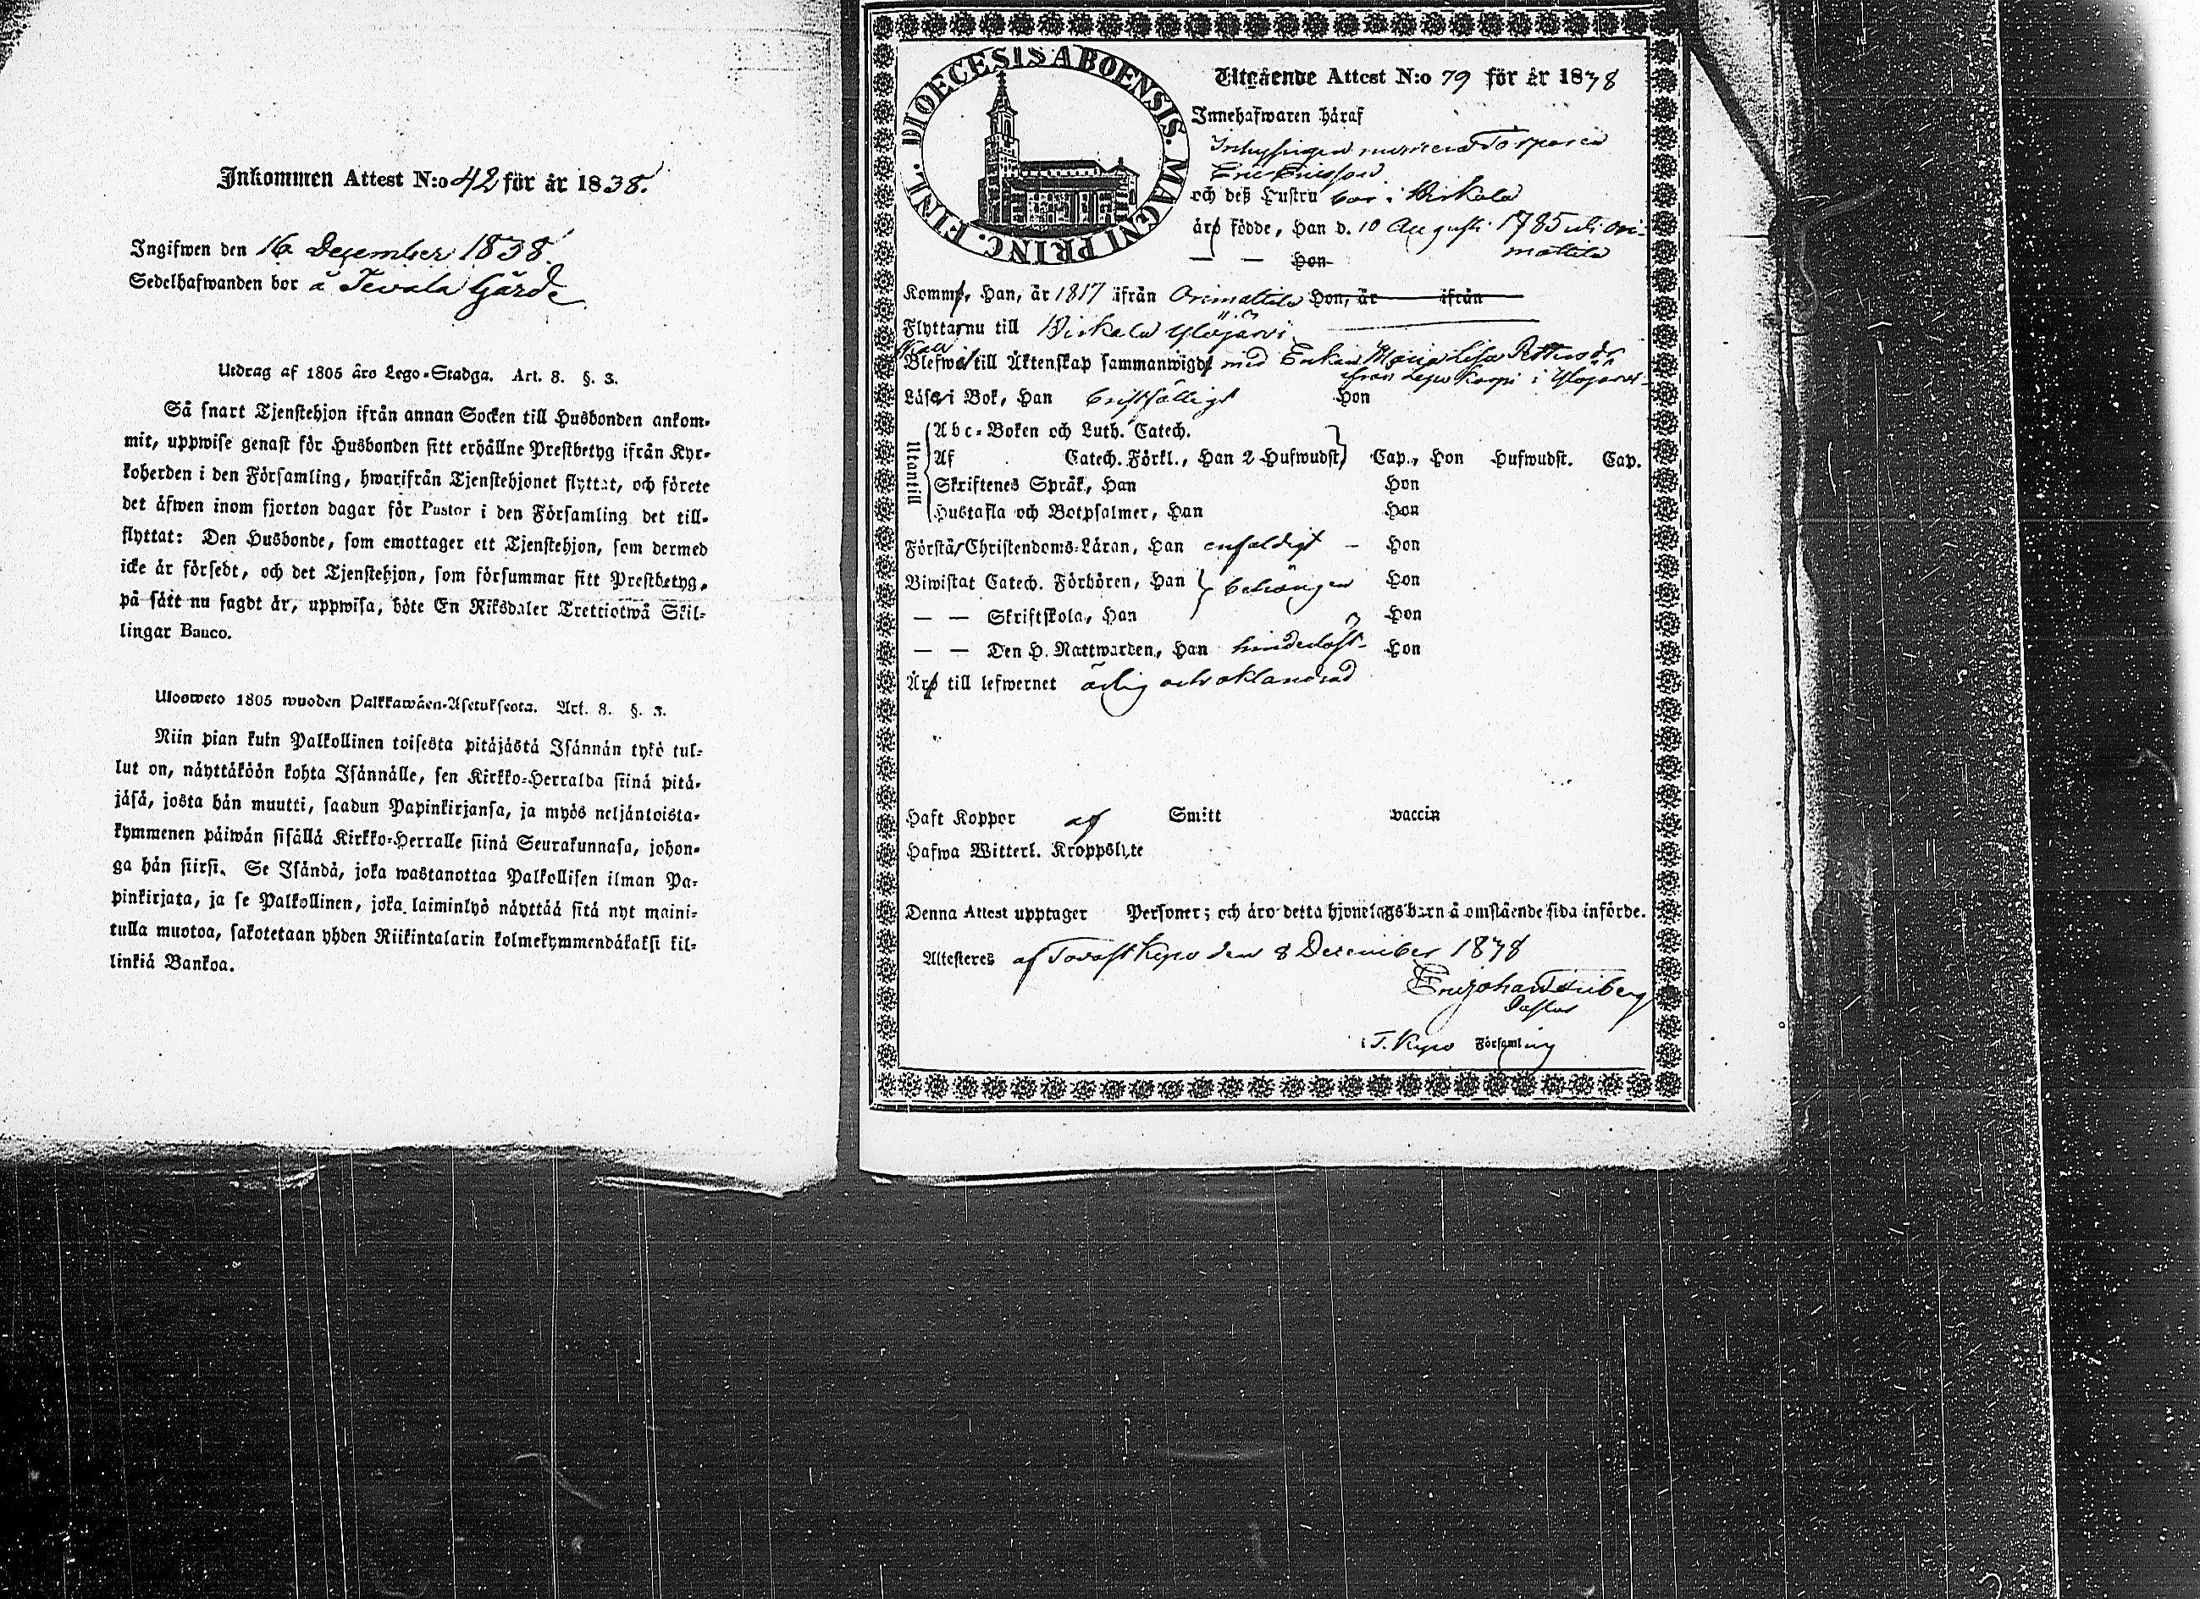 Inkommen Attest N:o 42 för år 1838.
Ingifwen den 16 December 1838.
Sedelhafwanden bor å Tevala Gärde
Utdrag af 1805 års Lego-Stadga. Art. 8. §. 3.
Så snart Tjenstehjon ifrån annan Socken till Husbonden ankom-
mit, uppwise genast för Husbonden sitt erhållne Prestbetyg ifrån Kyr-
koherden i den Församling, hwarifrån Tjenstehjonet flyttat, och förete
det äfwen inom fjorton dagar för Pastor i den Församling det till-
flyttat: Den Husbonde, som emottager ett Tjenstehjon, som dermed
icke är försedt, och det Tjenstehjon, som försummar sitt Prestbetyg,
på sätt nu sagdt är, uppwisa, böte En Riksdaler Trettiotwå Skil-
lingar Banco.
Ulosweto 1805 wuoden Palkkawäen-Asetuksesta. Art. 8. §. 3.
Niin pian kuin Palkollinen toisesta pitäjästä Isännän tykö tul-
lut on, näyttäköön kohta Isännälle, sen Kirkko-Herralda siinä pitä-
jäsä, josta hän muutti, saadun Papinkirjansa, ja myös neljäntoista-
kymmenen päiwän sisällä Kirkko-Herralle siinä Seurakunnasa, johon-
ga hän siirsi. Se Isändä, joka wastanottaa Palkollisen ilman Pa-
pinkirjata, ja se Palkollinen, joka laiminlyö näyttää sitä nyt maini-
tulla muotoa, sakotetaan yhden Riikintalarin kolmekymmendäkaksi kil-
linkiä Bankoa.
DIOECESIS ABOENSIS. MAGNI PRINC. FINL.
Utgående Attest N:o 79 för år 1838
Innehafwaren häraf
Inhysingen numera Torparen
Eric Ericsson
och deß Hustru bor i Wirkala
äro födde, Han d. 10 Augusti 1785 uti Ori-
mattila
— — Hon
Komm, Han, år 1817 ifrån Orimattila Hon, år ifrån
Flyttar nu till Wirkala Ylöjärvi
Blefwo till Äktenskap sammanwigde med Enkan Maria Lisa
från i Ylöjärvi
Läser i Bok, Han Hon
Utantill
Abc-Boken och Luth. Catech.
Af Catech. Förkl., Han 2 Hufwudst. Cap., Hon Hufwudst. Cap.
Skriftenes Språk, Han Hon
Hustafla och Botpsalmer, Han Hon
Förstå Christendoms-Läran, Han enfaldigt – Hon
Biwistat Catech. Förhören, Han behörigen Hon
— — Skriftskola, Han Hon
— — Den H. Nattwarden, Han hinderlöst Hon
Äro till lefwernet ärlig och oklandrad
Haft Koppor af Smitt vaccin
Hafwa Witterl. Kroppslyte
Denna Attest upptager Personer; och äro detta hjonelags barn å omstående sida införde.
Attesteres af Tavastkyro den 8 December 1838
Eric Johan
Pastor
i T. Kyro Församling